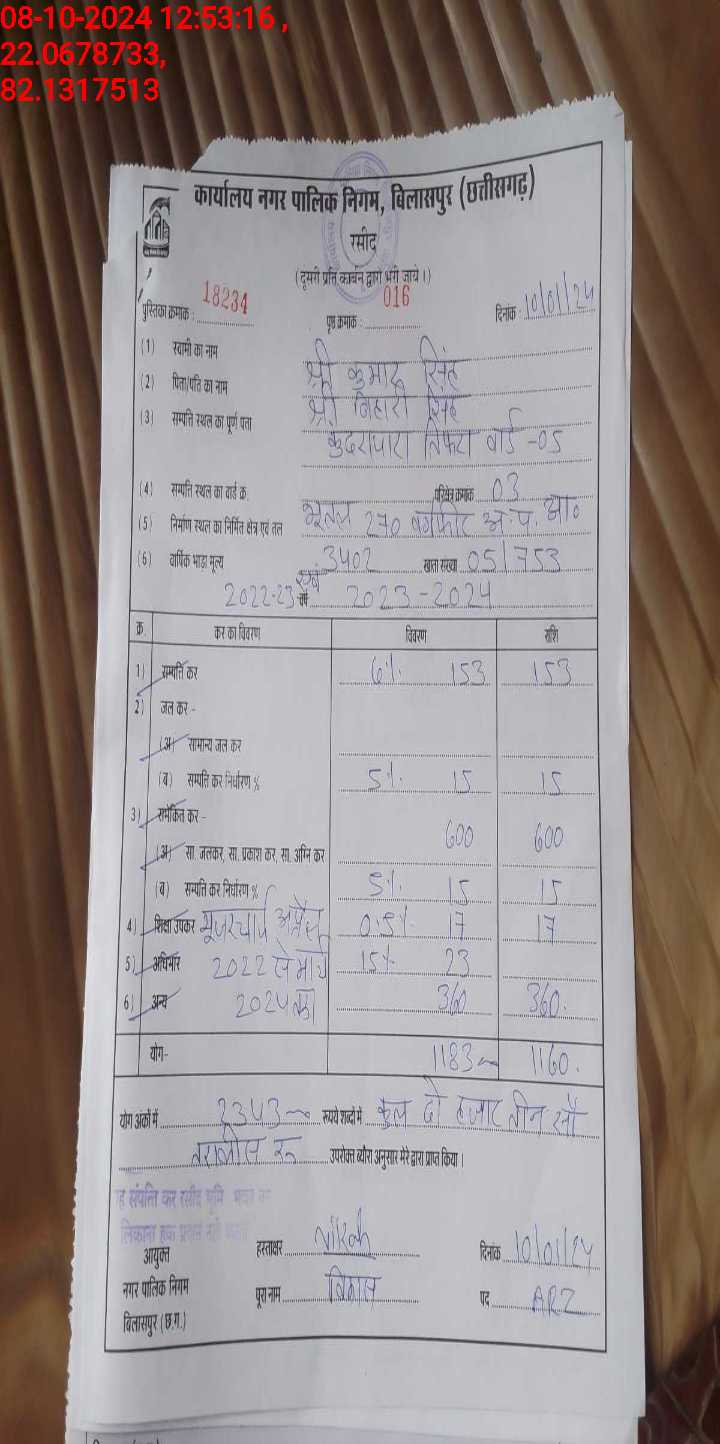 08-10-2024 12:53:16 ,
22.0678733,
82.1317513
कार्यालय नगर पालिक निगम, बिलासपुर (छत्तीसगढ़)
रसीद
(दूसरी प्रति कार्बन द्वारा भरी जाये।)
पुस्तिका क्रमांक : 18234 पृष्ठ क्रमांक : 016 दिनांक : 10/01/24
(1) स्वामी का नाम श्री कुमार सिंह
(2) पिता/पति का नाम श्री बिहारी सिंह
(3) सम्पत्ति स्थल का पूर्ण पता कुदरापारा तिफरा वार्ड -05
(4) सम्पत्ति स्थल का वार्ड क्र. परिक्षेत्र क्रमांक 03
(5) निर्माण स्थल का निर्मित क्षेत्र एवं तल भूतल 270 वर्गफीट अ.प. आ०
(6) वार्षिक भाड़ा मूल्य 3402 खाता संख्या 05/753
2022-23 एवं वर्ष 2023-2024
क्र. कर का विवरण विवरण राशि
1) सम्पत्ति कर 6% 153 153
2) जल कर -
(अ) सामान्य जल कर
(ब) सम्पत्ति कर निर्धारण % 5% 15 15
3) समेकित कर -
(अ) सा. जलकर, सा. प्रकाश कर, सा. अग्नि कर 600 600
(ब) सम्पत्ति कर निर्धारण % 5% 15 15
4) शिक्षा उपकर यूजरचार्ज अप्रैल 0.5% 17 17
5) अधिभार 2022 से मार्च 15% 23
6) अन्य 2024 तक 360 360.
योग- 1183 1160.
योग अंकों में 2343 रूपये शब्दों में कुल दो हजार तीन सौ
तिरालीस रू उपरोक्त ब्यौरा अनुसार मेरे द्वारा प्राप्त किया।
यह संपत्ति कर रसीद भूमि
आयुक्त हस्ताक्षर दिनांक 10/01/24
नगर पालिक निगम पूरा नाम विकास पद ARI
बिलासपुर (छ.ग.)